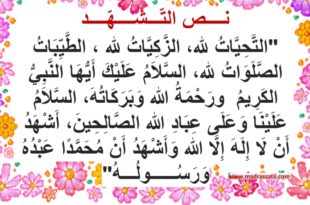 نــص التَّــشَــهُّــد
"التَّحِيَّاتُ لله، الزَّكِيَّاتُ لله ، الطَّيِّبَاتُ
الصَّلَوَاتُ لله، السَّلاَمُ عَلَيْكَ أَيُّهَا النَّبِيُّ
الكَرِيمُ وَرَحْمَةُ الله وَبَرَكَاتُهَ، السَّلاَمُ
عَلَيْنَا وَعَلَى عِبَادِ الله الصَّالِحِينَ، أَشْهَدُ
أَنْ لاَ إِلَهَ إِلاَّ الله وَأَشْهَدُ أَنْ مُحَمَّدًا عَبْدُهُ
وَرَسُــولُــهُ"
www.madrassatii.com